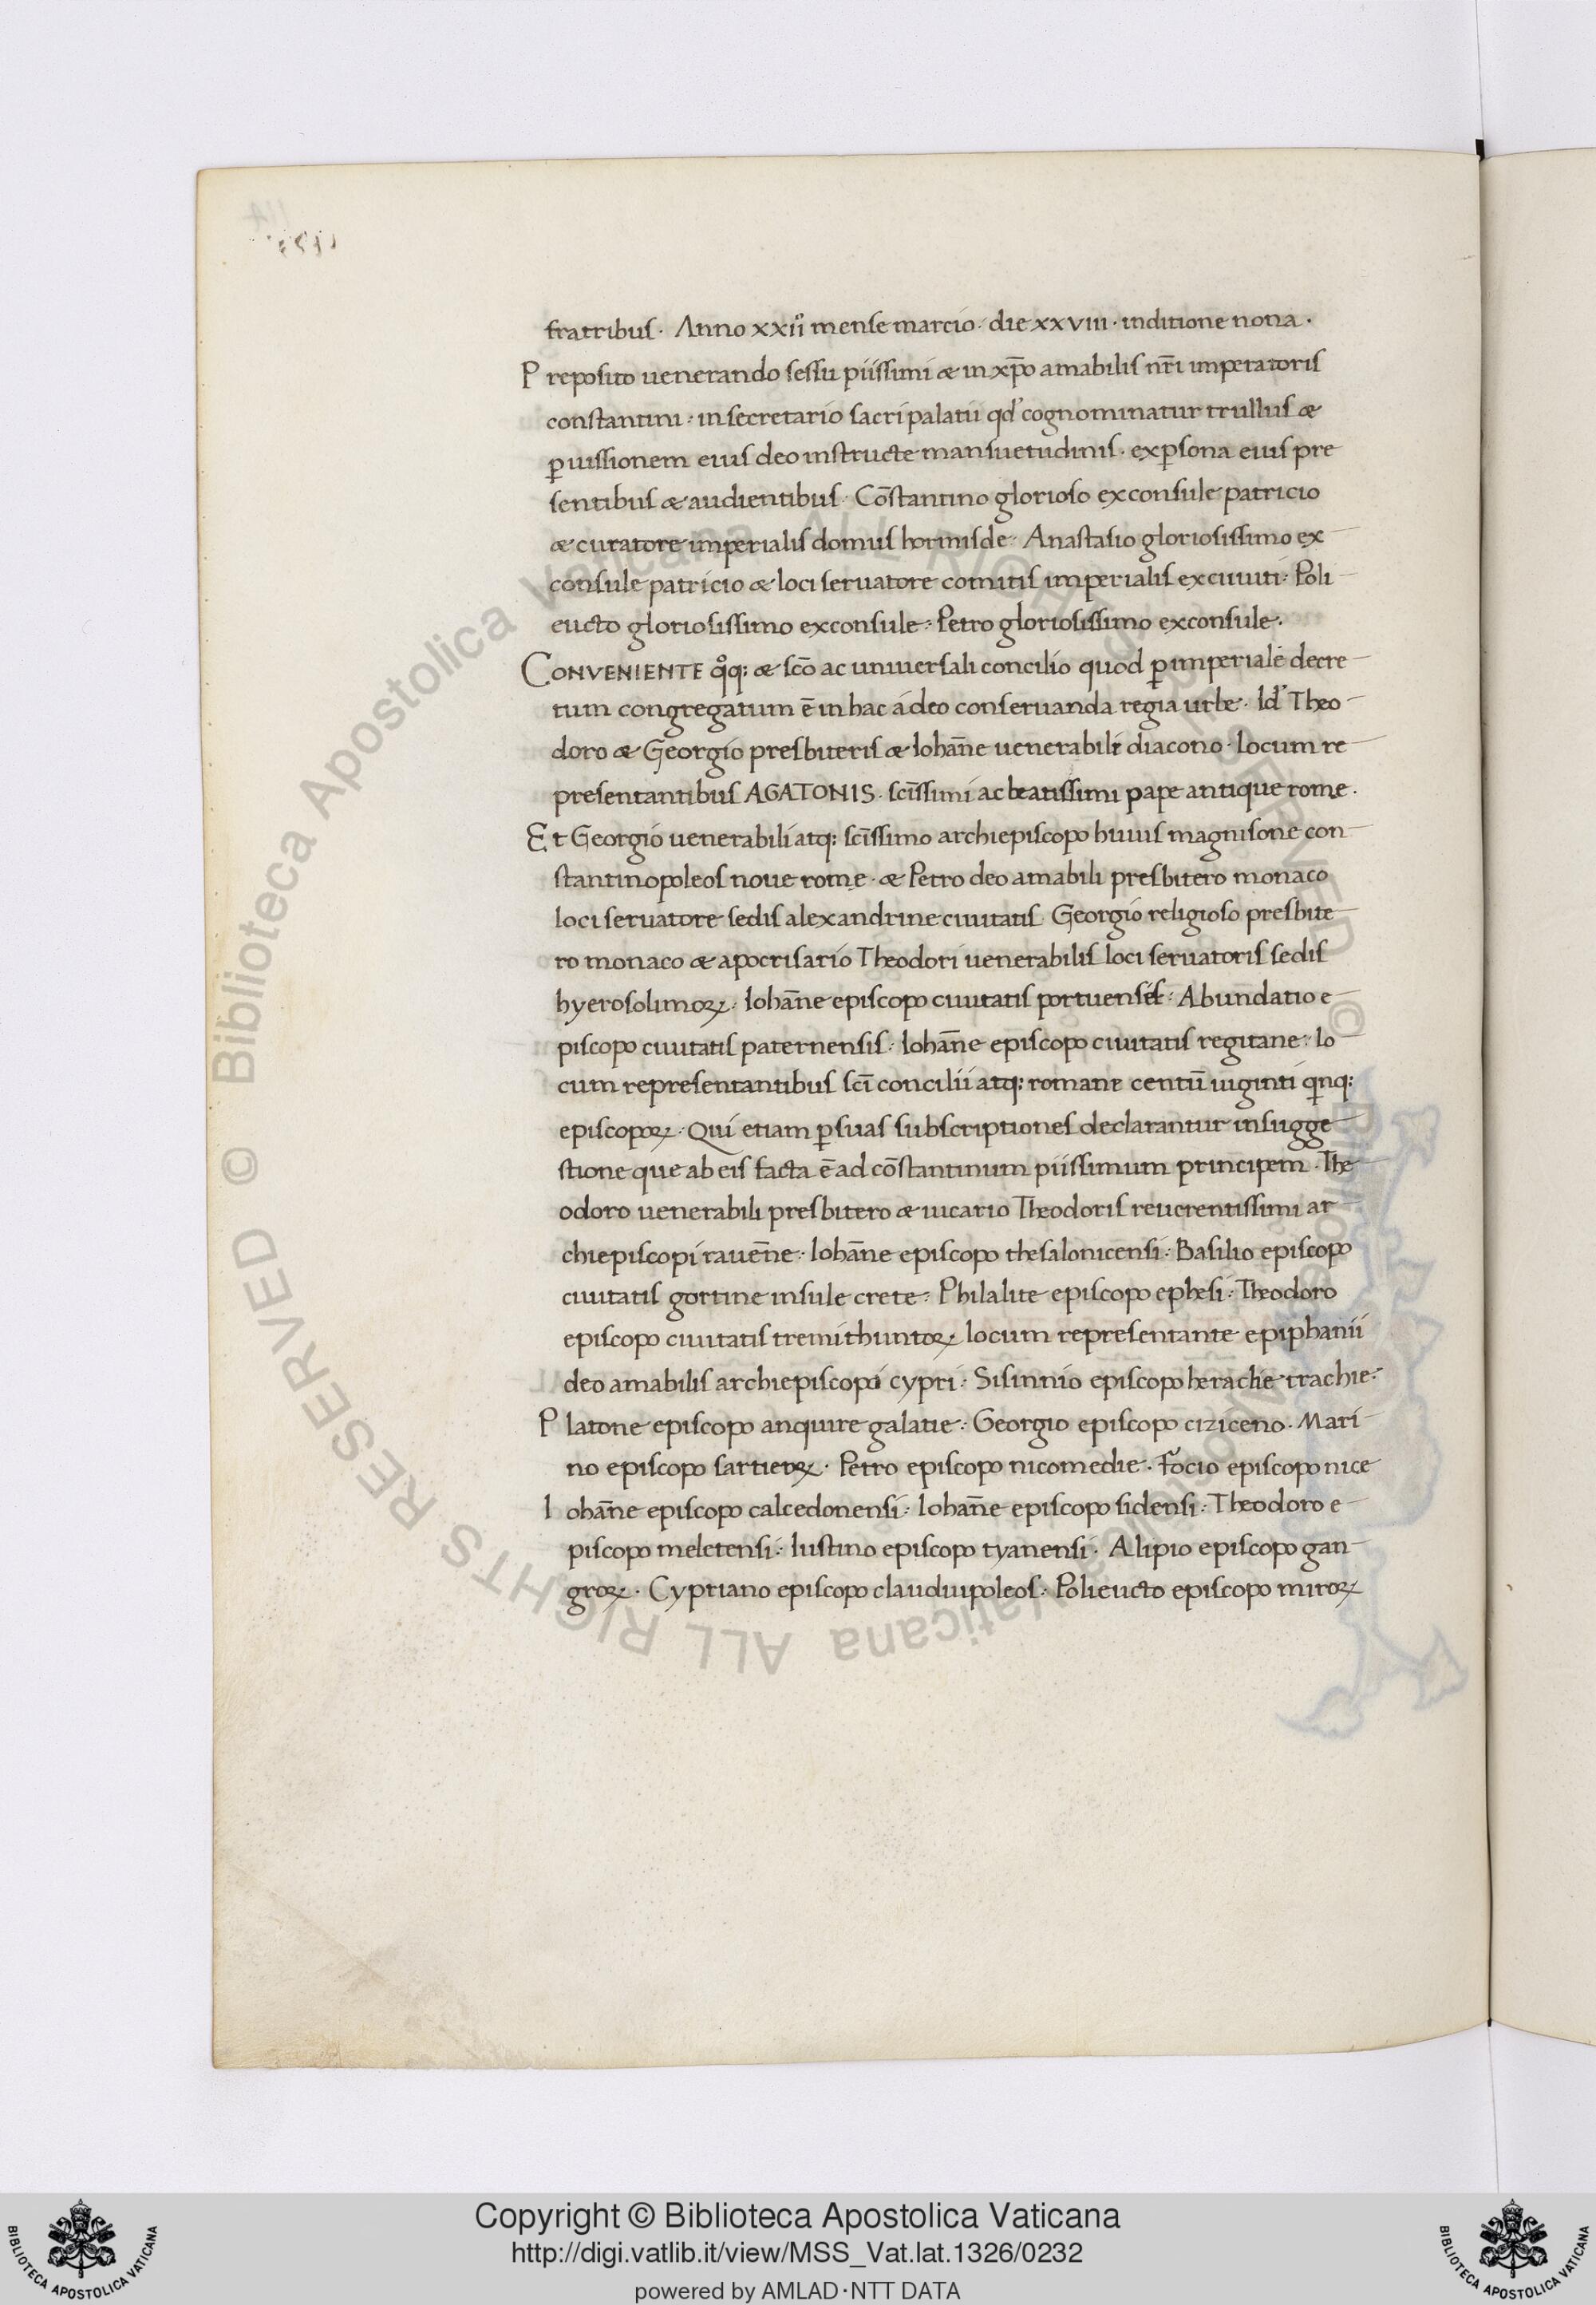 fratribus. Anno xxiiº mense marcio. die xxviii. inditione nona.
Preposito uenerando sessu piissimi & in xp̄o amabilis nr̄i imperatoris
constantini. in secretario sacri palatii qd' cognominatur trullus &
ꝑ iussionem eius deo instructe mansuetudinis. exꝑsona eius pre
sentibus & audientibus. Cōstantino glorioso exconsule patricio
& curatore imperialis domus hormisde. Anastasio gloriosissimo ex
consule patricio & loci seruatore comitis imperialis excuuiti. Poli
eucto gloriosissimo exconsule. Petro gloriosissimo exconsule.
CONVENIENTE qͦq: & sc̄o ac uniuersali concilio quod ꝑ imperiale decre
tum congregatum ē in hac á deo conseruanda regia urbe. Id' Theo
doro & Georgio presbiteris & Iohan̄e uenerabili diacono. locum re
presentantibus AGATONIS. sc̄issimi ac beatissimi pape antique rome.
Et Georgio uenerabili atq: sc̄issimo archiepiscopo huius magnisone con
stantinopoleos noue rome. & Petro deo amabili presbitero monaco
loci seruatore sedis alexandrine ciuitatis Georgio religioso presbite
ro monaco & apocrisario Theodori uenerabilis loci seruatoris sedis
hyerosolimoꝝ. Iohan̄e episcopo ciuitatis portuensis. Abundatio e
piscopo ciuitatis paternensis. Iohan̄e episcopo ciuitatis regitane. lo
cum representantibus sc̄i concilii atq: romane centū uiginti qinq:
episcopoꝝ. Qui etiam ꝑ suas subscriptiones declarantur in sugge
stione que ab eis facta ē ad cōstantinum piissimum principem. The
odoro uenerabili presbitero & uicario Theodoris reuerentissimi ar
chiepiscopi rauen̄e. Iohan̄e episcopo thesalonicensi. Basilio episcopo
ciuitatis gortine insule crete. Philalite episcopo ephesi. Theodoro
episcopo ciuitatis tremithuntoꝝ locum representante epiphanii
deo amabilis archiepiscopi cypri. Sisinnio episcopo heraclie trachie.
Platone episcopo anquire galatie. Georgio episcopo ciziceno. Mari
no episcopo sartieoꝝ. Petro episcopo nicomedie. Focio episcopo nice
Iohan̄e episcopo calcedonensi. Iohan̄e episcopo sidensi. Theodoro e
piscopo meletensi. Iustino episcopo tyanensi. Alipio episcopo gan
groꝝ. Cypriano episcopo claudiupoleos. Polieucto episcopo miroꝝ
© Biblioteca Apostolica Vaticana ALL RIGHTS RESERVED © Biblioteca Apostolica Vaticana ALL RIGHTS RESERVED
Copyright © Biblioteca Apostolica Vaticana
http://digi.vatlib.it/view/MSS_Vat.lat.1326/0232
powered by AMLAD·NTT DATA
BIBLIOTECA APOSTOLICA VATICANA
BIBLIOTECA APOSTOLICA VATICANA